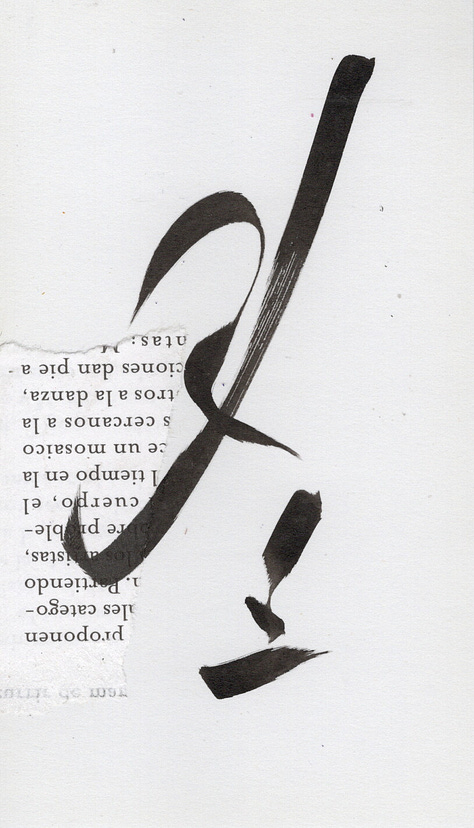 proponen
les catego-
n. Partiendo
y los artistas,
bre proble-
cuerpo, el
l tiempo en la
ce un mosaico
s cercanos a la
tros a la danza,
ciones dan pie a
ntas: